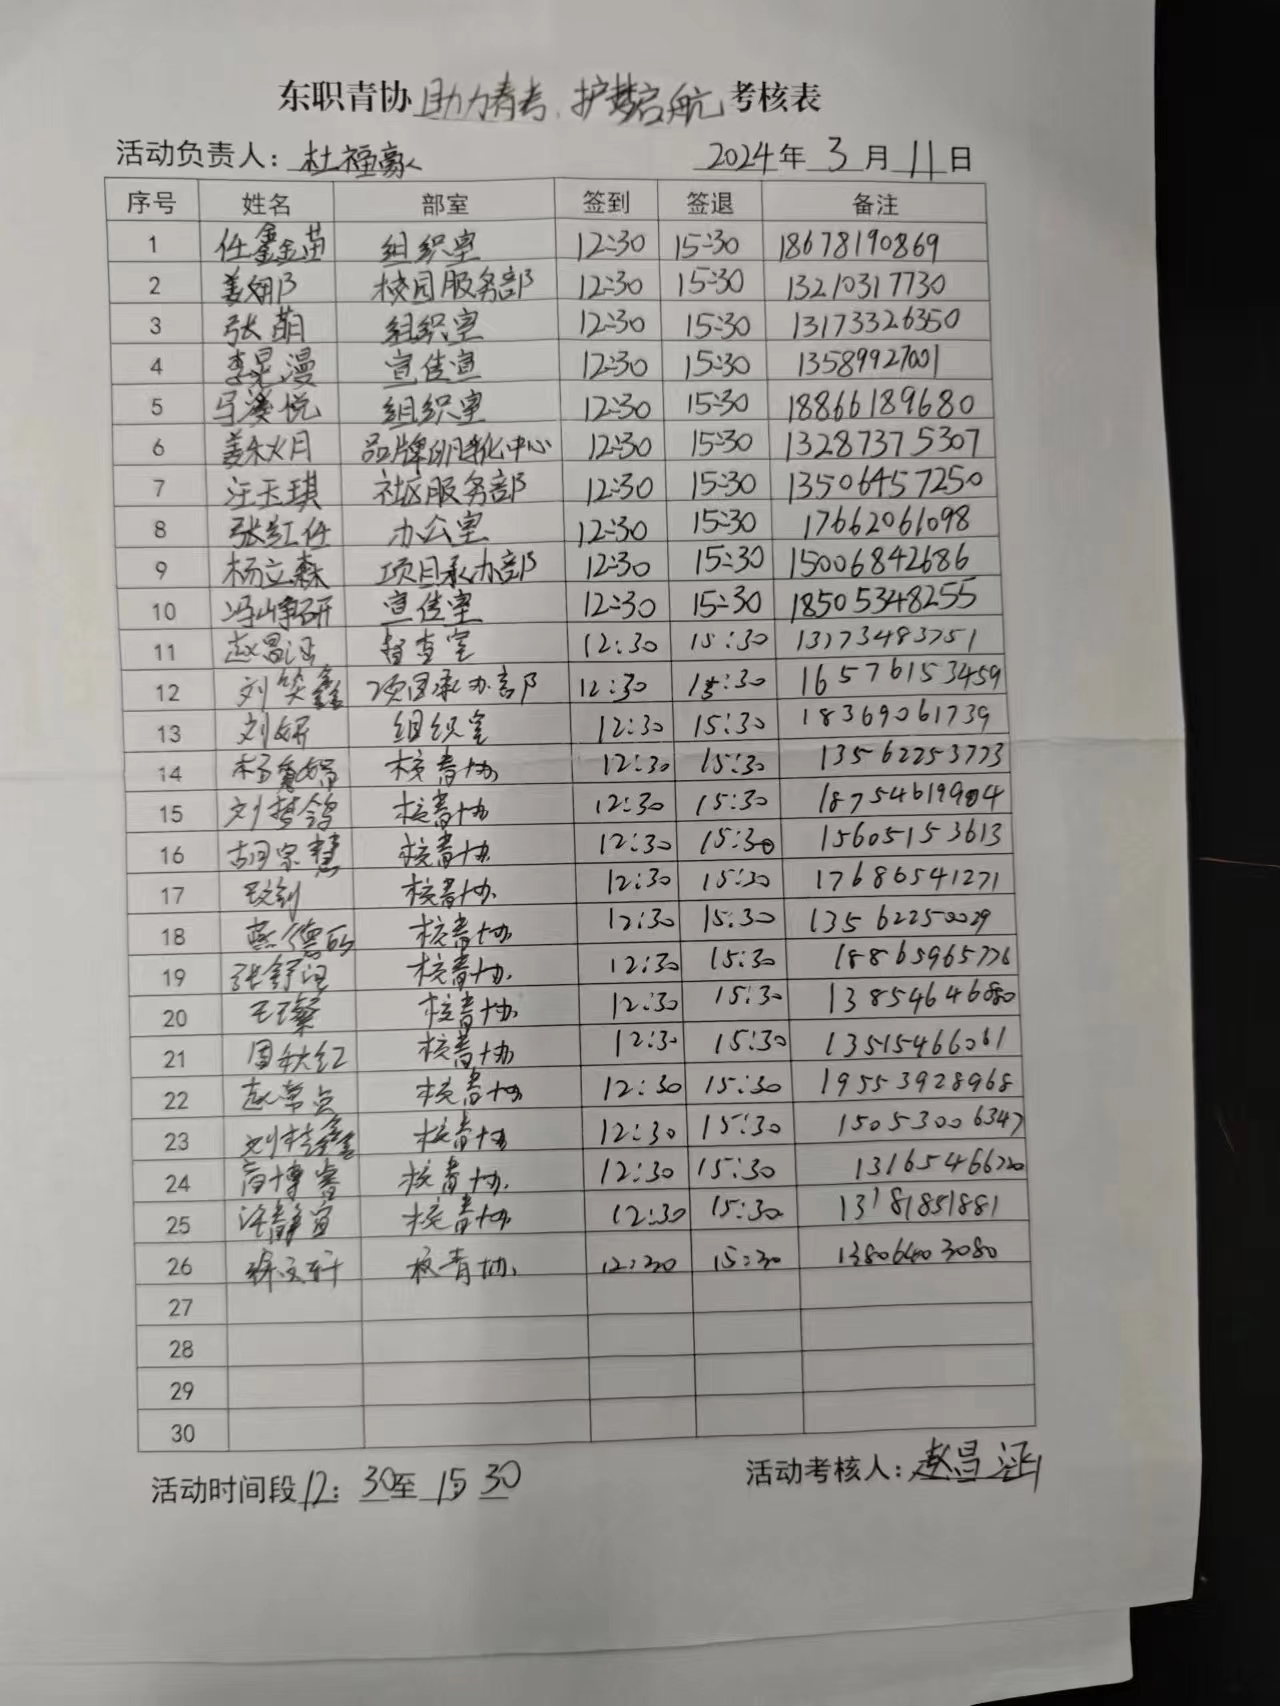 东职青协 助力春考、护梦启航 考核表
活动负责人：杜福豪 2024年 3月 11日
序号 姓名 部室 签到 签退 备注
1 任鑫苗 组织室 12:30 15:30 18678190869
2 姜娜 校园服务部 12:30 15:30 13210317730
3 张萌 组织室 12:30 15:30 13173326350
4 李昱漫 宣传室 12:30 15:30 13589927001
5 组织室 12:30 15:30 18866189680
6 品牌孵化中心 12:30 15:30 13287375307
7 汪玉琪 社区服务部 12:30 15:30 13506457250
8 张红任 办公室 12:30 15:30 17662061098
9 杨立森 项目承办部 12:30 15:30 15006842686
10 冯峥研 宣传室 12:30 15:30 18505348255
11 赵昌涵 督查室 12:30 15:30 13173483751
12 刘笑鑫 项目承办部 12:30 15:30 165776153459
13 刘妍 组织室 12:30 15:30 18369061739
14 校青协 12:30 15:30 13562253773
15 刘梦鸽 校青协 12:30 15:30
16 胡宗慧 校青协 12:30 15:30 15605153613
17 校青协 12:30 15:30 17686541271
18 校青协 12:30 15:30 13562250029
19 张舒涵 校青协 12:30 15:30 18865965776
20 王璨 校青协 12:30 15:30 13854646080
21 周秋红 校青协 12:30 15:30 13515466061
22 校青协 12:30 15:30 19553928968
23 刘桂鑫 校青协 12:30 15:30 15053006347
24 高博睿 校青协 12:30 15:30 13165466720
25 许静宣 校青协 12:30 15:30 13181851881
26 徐文轩 校青协 12:30 15:30 13806403080
27
28
29
30
活动时间段 12：30至 15 30 活动考核人：赵昌涵